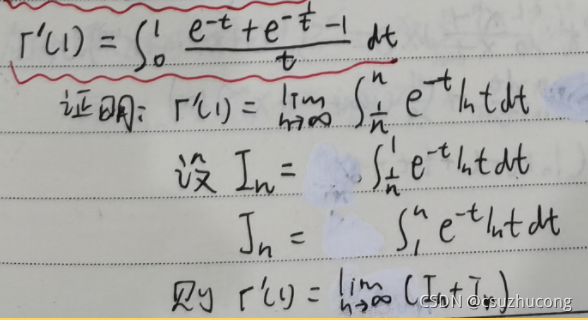 Γ'(1) = ∫₀¹ (e^{-t} + e^{-1/t} - 1)/t dt
证明: Γ'(1) = lim_{n→∞} ∫_{1/n}^{n} e^{-t} ln t dt
设 Iₙ = ∫_{1/n}^{1} e^{-t} ln t dt
Jₙ = ∫₁ⁿ e^{-t} ln t dt
则 Γ'(1) = lim_{n→∞} (Iₙ + Jₙ)
CSDN @csuzhucong